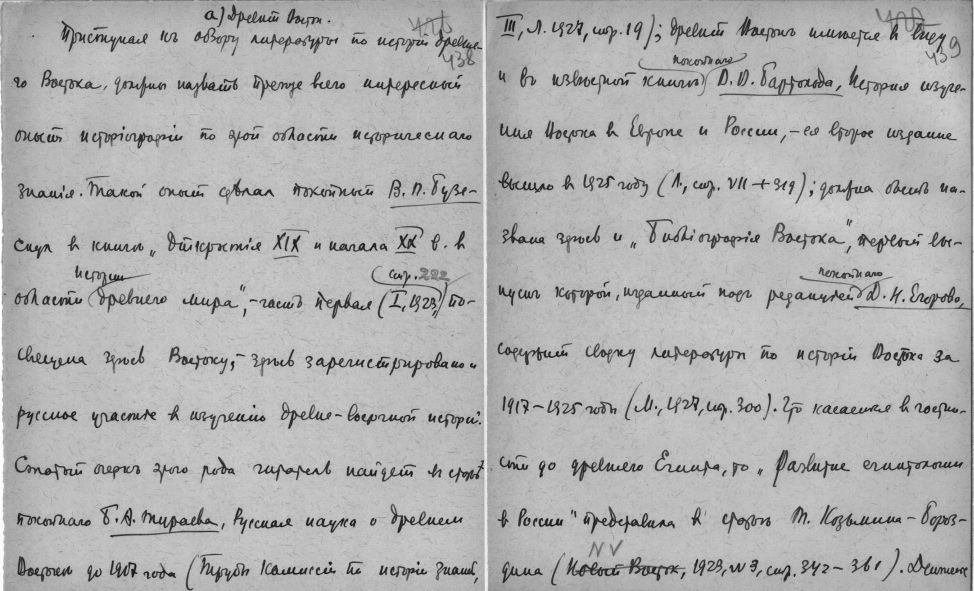 а) Древній Восток.
438
Приступая къ обзору литературы по исторіи древня-
го Востока, должны назвать прежде всего интересный
опытъ исторіографіи по этой области историческаго
знанія. Такой опытъ сдѣлал покойный В. П. Бузе-
скул в книгѣ „Открытія XIX и начала XX в. в
исторіи стр. 222
области древняго мира", – часть первая (I, 1923), по-
священа здѣсь Востоку, – здѣсь зарегистрировано и
русское участіе в изученіи древне-восточной исторіи.
Сжатый очеркъ этого рода читатель найдет въ статьѣ
покойнаго Б. А. Тураева, Русская наука о древнем
Востокѣ до 1917 года (Труды Комиссіи по исторіи знаній,
439
III, Л. 1927, стр. 19); древній Востокъ имѣется в виду
покойнаго
и въ извѣстной книгѣ В. В. Бартольда, Исторія изуче-
нія Востока в Европе и Россіи, – ея второе изданіе
вышло в 1925 году (Л., стр. VII + 319); должна быть на-
звана здѣсь и „Библіографія Востока", первый вы-
покойнаго
пускъ которой, изданный подъ редакціей Д. Н. Егорова,
содержит сводку литературы по исторіи Востока за
1917–1925 годы (М., 1927, стр. 300). Что касается в частно-
сти до древняго Египта, то „Развитіе египтологіи
в Россіи" представила в статьѣ Т. Козьмина-Бороз-
NV
дина (Новый Восток, 1923, N 3, стр. 342–361). Движеніе